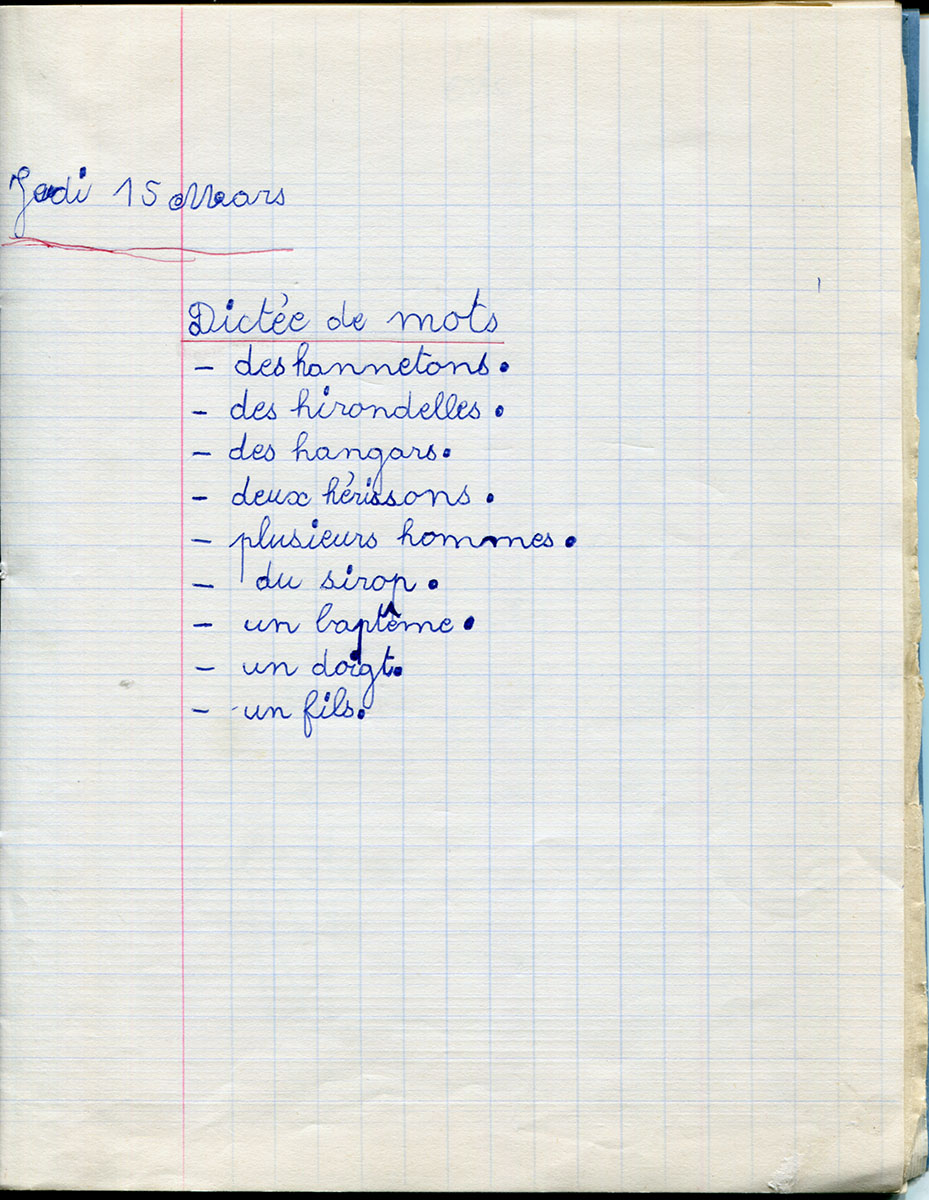 Jeudi 15 Mars
Dictée de mots
- des hannetons.
- des hirondelles.
- des hangars.
- deux hérissons.
- plusieurs hommes.
- du sirop.
- un baptême.
- un doigt.
- un fils.